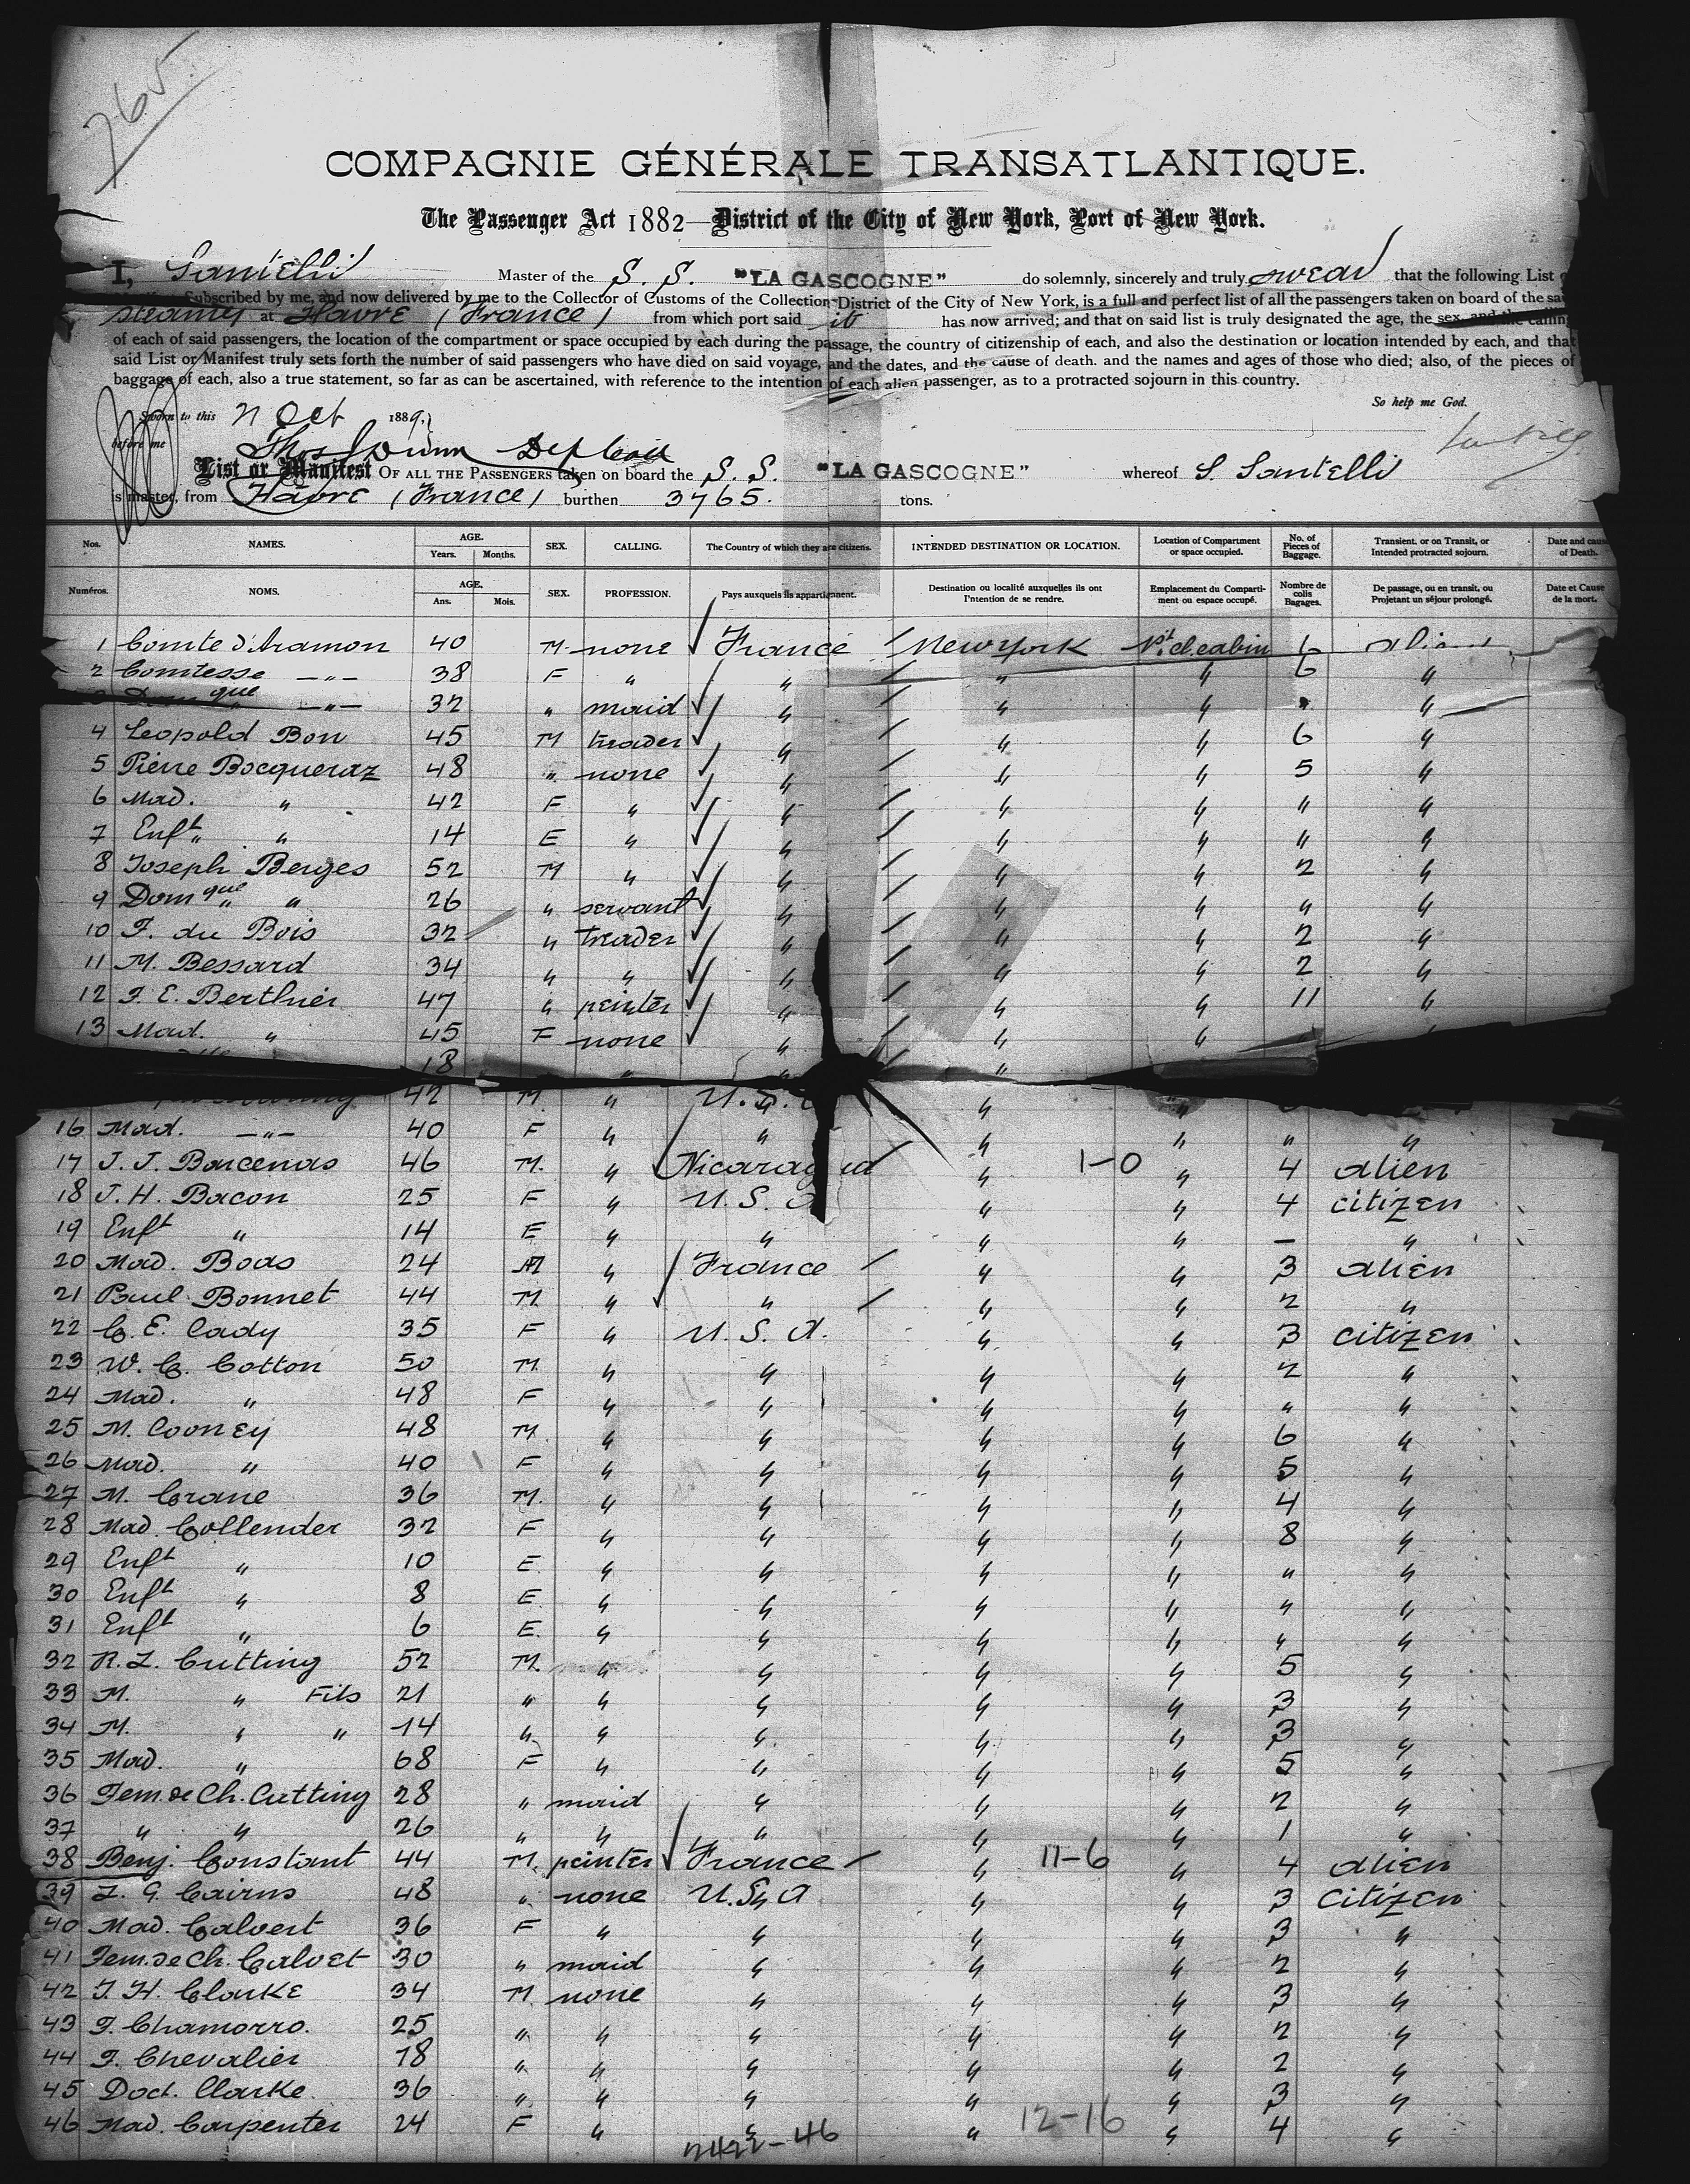 265.
COMPAGNIE GÉNÉRALE TRANSATLANTIQUE.
The Passenger Act 1882—District of the City of New York, Port of New York.
I, Santelli Master of the S. S. "LA GASCOGNE" do solemnly, sincerely and truly swear that the following List
Subscribed by me, and now delivered by me to the Collector of Customs of the Collection District of the City of New York, is a full and perfect list of all the passengers taken on board of the
steamer at Havre (France) from which port said it has now arrived; and that on said list is truly designated the age, the sex, and the calling
of each of said passengers, the location of the compartment or space occupied by each during the passage, the country of citizenship of each, and also the destination or location intended by each, and that
said List or Manifest truly sets forth the number of said passengers who have died on said voyage, and the dates, and the cause of death, and the names and ages of those who died; also, of the pieces of
baggage of each, also a true statement, so far as can be ascertained, with reference to the intention of each alien passenger, as to a protracted sojourn in this country.
So help me God.
Sworn to this 21 Oct 1889,
before me
List or Manifest OF ALL THE PASSENGERS taken on board the S. S. "LA GASCOGNE" whereof S. Santelli
is master, from Havre (France) burthen 3765. tons.
Nos. NAMES. AGE. Years. Months. SEX. CALLING. The Country of which they are citizens. INTENDED DESTINATION OR LOCATION. Location of Compartment or space occupied. No. of Pieces of Baggage. Transient, or on Transit, or Intended protracted sojourn. Date and cause of Death.
Numéros. NOMS. AGE. Ans. Mois. SEX. PROFESSION. Pays auxquels ils appartiennent. Destination ou localité auxquelles ils ont l'intention de se rendre. Emplacement du Compartiment ou espace occupé. Nombre de colis Bagages. De passage, ou en transit, ou Projetant un séjour prolongé. Date et Cause de la mort.
1 Comte d'Aramon 40 M. none France New York 1st cl. cabin 6 alien
2 Comtesse —"— 38 F " " " " 6 "
3 Domque —"— 32 " maid " " " " "
4 Leopold Bon 45 M trader " " " 6 "
5 Pierre Bocqueraz 48 " none " " " 5 "
6 Mad. " 42 F " " " " " "
7 Enft " " 14 E " " " " " "
8 Joseph Berges 52 M " " " " 2 "
9 Domque " " 26 " servant " " " " "
10 F. du Bois 32 " trader " " " 2 "
11 M. Bessard 34 " " " " " 2 "
12 F. E. Berthier 47 " peinter " " " 11 "
13 Mad. " 45 F none " " "
18 " " "
42 M. " U. S. " "
16 Mad. —"— 40 F " " " " " "
17 J. J. Barcenas 46 M. " Nicaragua " 1-0 " 4 alien
18 J. H. Bacon 25 F " U. S. A " " 4 citizen
19 Enft " 14 E " " " " — "
20 Mad. Boas 24 M " France " " 3 alien
21 Paul Bonnet 44 M. " " " " 2 "
22 C. E. Cady 35 F " U. S. A. " " 3 citizen
23 W. C. Cotton 50 M. " " " " 2 "
24 Mad. " 48 F " " " " " "
25 M. Cooney 48 M. " " " " 6 "
26 Mad. " 40 F " " " " 5 "
27 M. Crane 36 M. " " " " 4 "
28 Mad. Collender 32 F " " " " 8 "
29 Enft " 10 E. " " " " " "
30 Enft " 8 E. " " " " " "
31 Enft " 6 E. " " " " " "
32 R. L. Cutting 52 M. " " " " 5 "
33 M. " Fils 21 " " " " " 3 "
34 M. " " 14 " " " " " 3 "
35 Mad. " 68 F " " " " 5 "
36 Fem. de Ch. Cutting 28 " maid " " " 2 "
37 " " 26 " " " " " 1 "
38 Benj. Constant 44 M. peinter France " 11-6 " 4 alien
39 L. G. Cairns 48 " none U.S. A " " 3 citizen
40 Mad. Calvert 36 F " " " " 3 "
41 Fem. de Ch. Calvet 30 " maid " " " 2 "
42 F. H. Clarke 34 M. none " " " 3 "
43 F. Chamorro. 25 " " " " " 2 "
44 F. Chevalier 18 " " " " " 2 "
45 Doct. Clarke. 36 " " " " " 3 "
46 Mad. Carpenter 24 F " " " 12-16 " 4 "